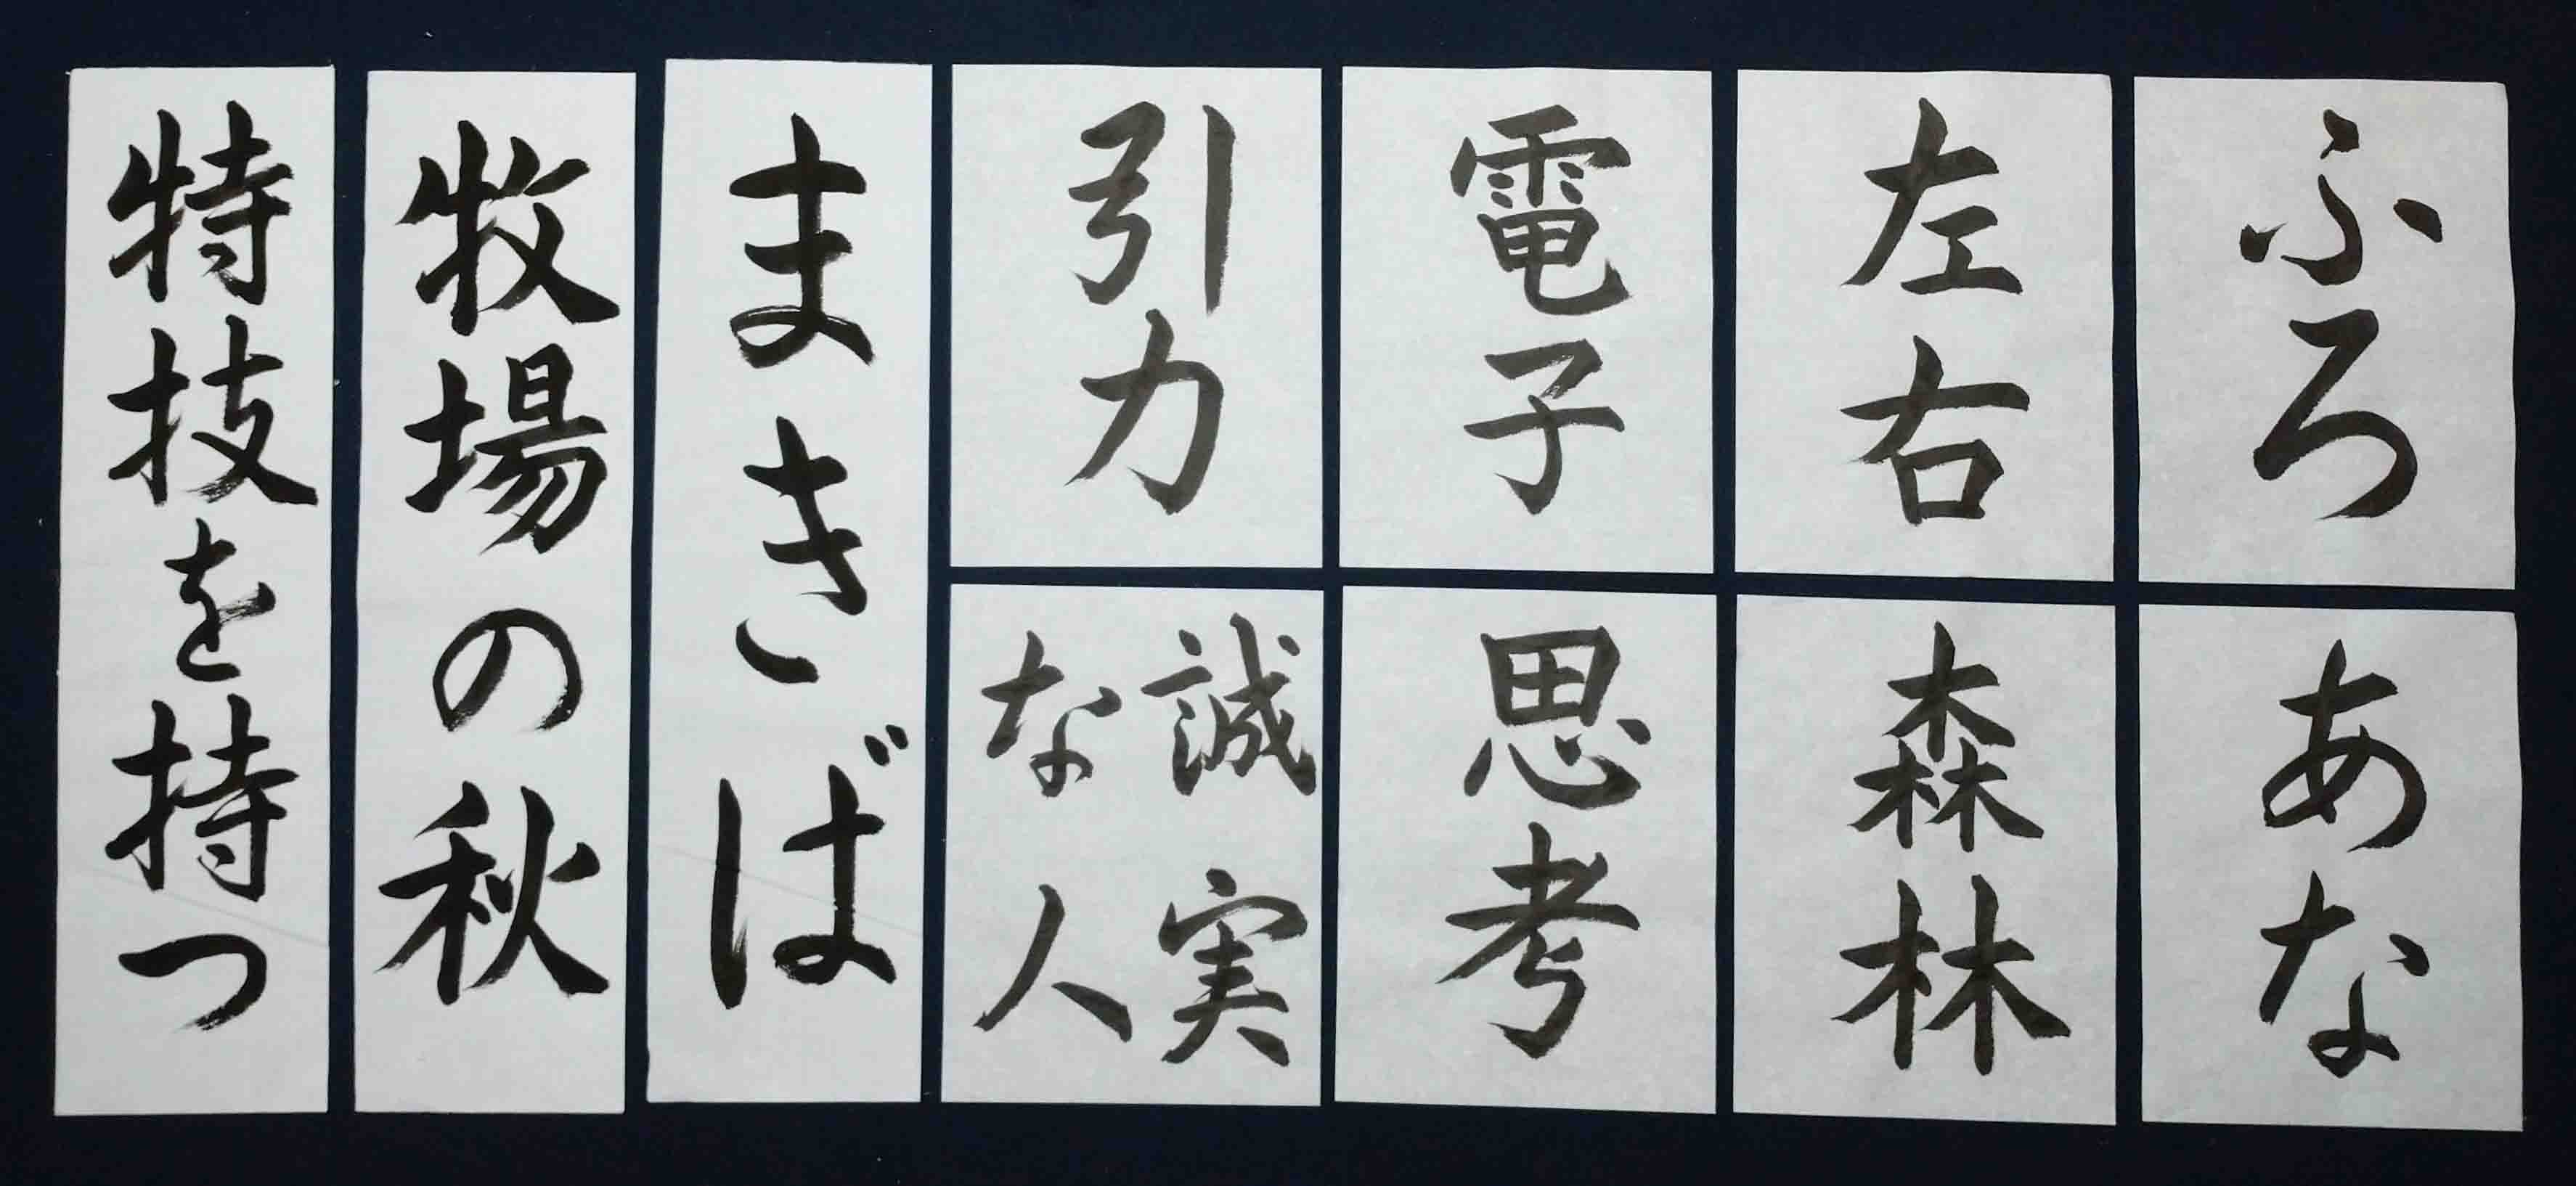 ふろ
あな
左右
森林
電子
思考
引力
誠実
な人
まきば
牧場の秋
特技を持つ